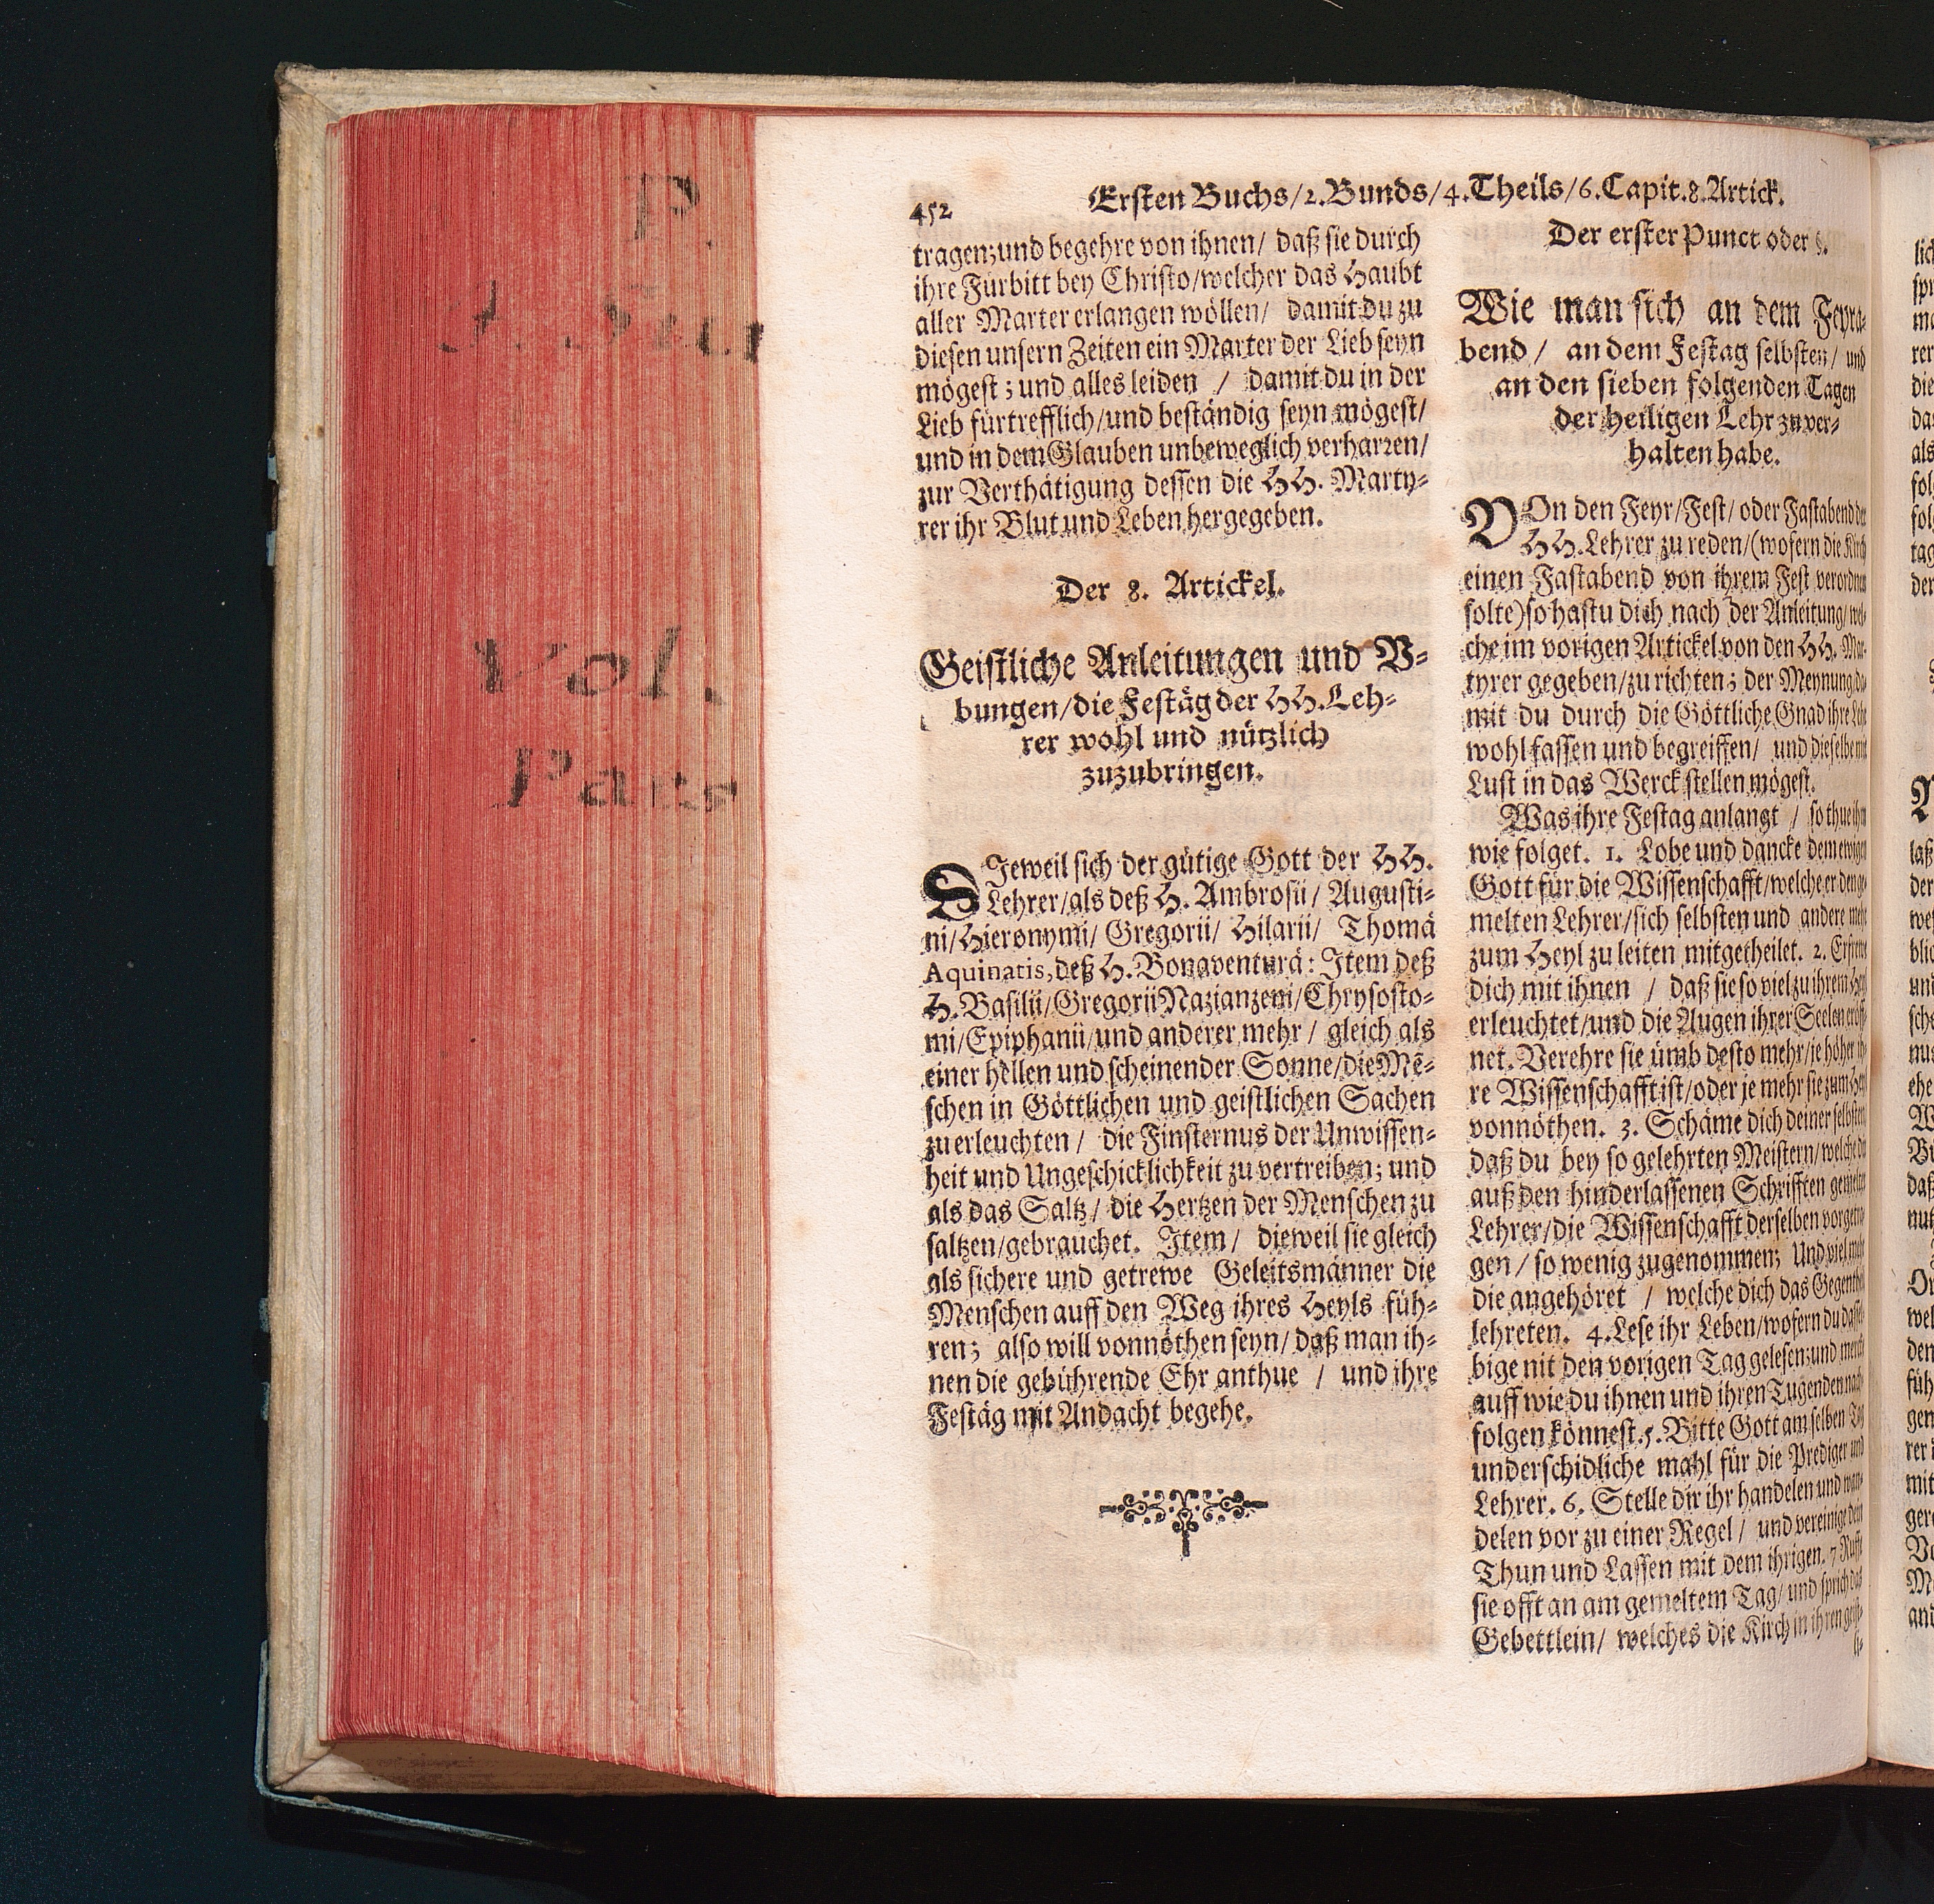 P.
Vol.
Pars
452
Ersten Buchs/2.Bunds/4.Theils/6.Capit.8.Artick.
tragen; und begehre von ihnen/ daß sie durch
ihre Fürbitt bey Christo/welcher das Haubt
aller Marter erlangen wöllen/ damit du zu
diesen unsern Zeiten ein Marter der Lieb seyn
mögest; und alles leiden / damit du in der
Lieb fürtrefflich/und beständig seyn mögest/
und in dem Glauben unbeweglich verharren/
zur Verthätigung dessen die HH. Marty-
rer ihr Blut und Leben hergegeben.
Der 8. Artickel.
Geistliche Anleitungen und V-
bungen/die Festäg der HH. Leh-
rer wohl und nützlich
zuzubringen.
DIeweil sich der gütige Gott der HH.
Lehrer/als deß H. Ambrosii/ Augusti-
ni/Hieronymi/ Gregorii/ Hilarii/ Thomä
Aquinatis, deß H. Bonaventurä: Item deß
H. Basilii/Gregorii Nazianzeni/Chrysosto-
mi/Epiphanii/und anderer mehr / gleich als
einer hellen und scheinender Sonne/die Mē-
schen in Göttlichen und geistlichen Sachen
zu erleuchten / die Finsternus der Unwissen-
heit und Ungeschicklichkeit zu vertreiben; und
als das Saltz/ die Hertzen der Menschen zu
saltzen/gebrauchet. Item/ dieweil sie gleich
als sichere und getrewe Geleitsmänner die
Menschen auff den Weg ihres Heyls füh-
ren; also will vonnöthen seyn/ daß man ih-
nen die gebührende Ehr anthue / und ihre
Festäg mit Andacht begehe.
Der erster Punct oder §.
Wie man sich an dem Feyra-
bend / an dem Festag selbsten/ und
an den sieben folgenden Tagen
der heiligen Lehr zu ver-
halten habe.
VOn den Feyr/Fest/ oder Fastabend der
HH. Lehrer zu reden/(wofern die Kirch
einen Fastabend von ihrem Fest verordnen
solte) so hastu dich nach der Anleitung/ wel-
che im vorigen Artickel von den HH. Mar-
tyrer gegeben/zu richten; der Meynung da-
mit du durch die Göttliche Gnad ihre Lehr
wohl fassen und begreiffen/ und dieselbe mit
Lust in das Werck stellen mögest.
Was ihre Festag anlangt / so thue ihm
wie folget. 1. Lobe und dancke dem ewigen
Gott für die Wissenschafft/welche er den ge-
melten Lehrer/sich selbsten und andere mehr
zum Heyl zu leiten mitgetheilet. 2. Erfrewe
dich mit ihnen / daß sie so viel zu ihrem Heyl
erleuchtet/und die Augen ihrer Seelen eröff-
net. Verehre sie ümb desto mehr/je höher ih-
re Wissenschafft ist/oder je mehr sie zum Heyl
vonnöthen. 3. Schäme dich deiner selbsten
daß du bey so gelehrten Meistern/welche du
auß den hinderlassenen Schrifften gemelter
Lehrer/die Wissenschafft derselben vorgetra-
gen / so wenig zugenommen; Und viel mehr
die angehöret / welche dich das Gegentheil
lehreten. 4. Lese ihr Leben/wofern du dassel-
bige nit den vorigen Tag gelesen; und merck
auff wie du ihnen und ihren Tugenden nach-
folgen könnest. 5. Bitte Gott am selben Tag
underschidliche mahl für die Prediger und
Lehrer. 6. Stelle dir ihr handelen und wan-
delen vor zu einer Regel / und vereinige dein
Thun und Lassen mit dem ihrigen. 7 Ruffe
sie offt an am gemeltem Tag/ und sprich das
Gebettlein/ welches die Kirch in ihren